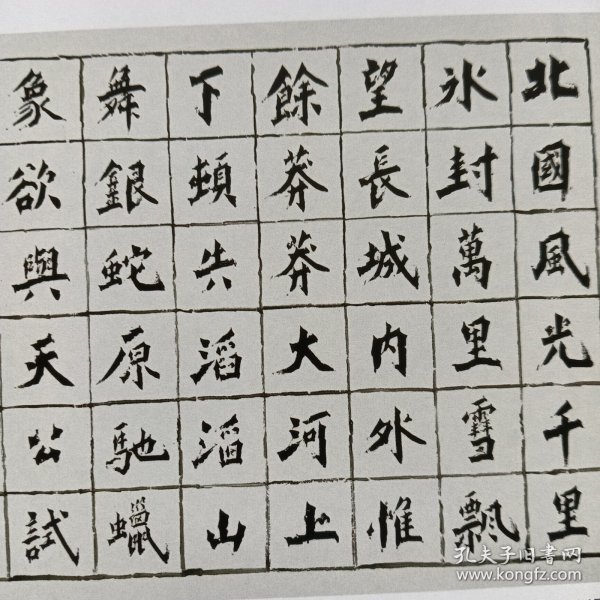 北國風光千里
氷封萬里雪飄
望長城内外惟
餘莽莽大河上
下頓失滔滔山
舞銀蛇原馳蠟
象欲與天公試
孔夫子旧书网
www.kongfz.com